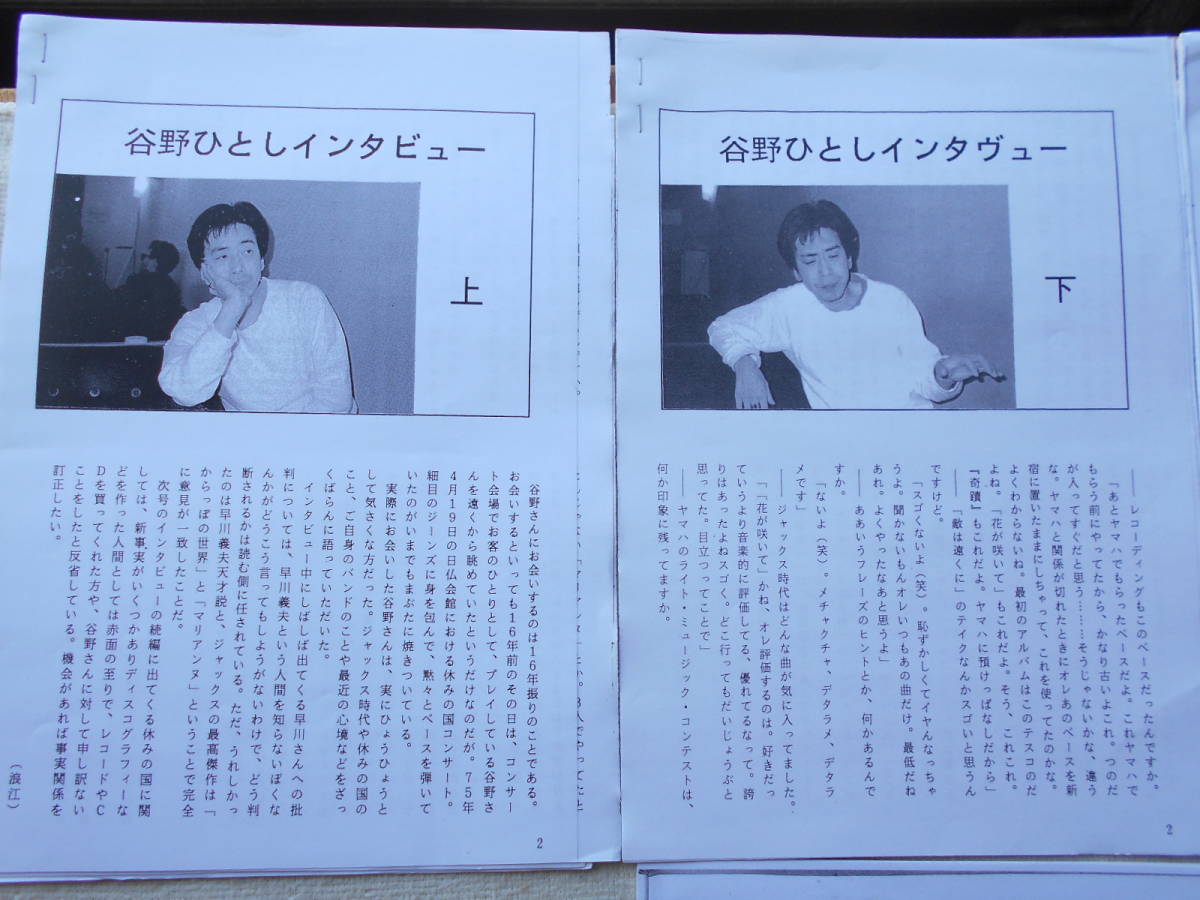 谷野ひとしインタビュー
上
谷野さんにお会いするのは16年振りのことである。
お会いするといっても16年前のその日は、コンサー
ト会場でお客のひとりとして、プレイしている谷野さ
んを遠くから眺めていたというだけなのだが。75年
4月19日の日仏会館における休みの国コンサート。
細目のジーンズに身を包んで、黙々とベースを弾いて
いたのがいまでもまぶたに焼きついている。
実際にお会いした谷野さんは、実にひょうひょうと
して気さくな方だった。ジャックス時代や休みの国の
こと、ご自身のバンドのことや最近の心境などをざっ
くばらんに語っていただいた。
インタビュー中にしばしば出てくる早川さんへの批
判については、早川義夫という人間を知らないぼくな
んかがどうこう言ってもしようがないわけで、どう判
断されるかは読む側に任されている。ただ、うれしかっ
たのは早川義夫天才説と、ジャックスの最高傑作は「
からっぽの世界」と「マリアンヌ」ということで完全
に意見が一致したことだ。
次号のインタビューの続編に出てくる休みの国に関
しては、新事実がいくつかありディスコグラフィーな
どを作った人間としては赤面の至りで、レコードやC
Dを買ってくれた方や、谷野さんに対して申し訳ない
ことをしたと反省している。機会があれば事実関係を
訂正したい。
（浪江）
2
谷野ひとしインタヴュー
下
――レコーディングもこのベースだったんですか。
「あとヤマハでもらったベースだよ。これヤマハで
もらう前にやってたから、かなり古いよこれ。つのだ
が入ってすぐだと思う………そうじゃないかな、違う
な。ヤマハと関係が切れたときにオレあのベースを新
宿に置いたままにしちゃって、これを使ってたのかな。
よくわからないね。最初のアルバムはこのテスコのだ
よね。「花が咲いて」もこれだよ。そう、これこれ。
『奇蹟』もこれだよ。ヤマハに預けっぱなしだから」
――「敵は遠くに」のテイクなんかスゴいと思うん
ですけど。
「スゴくないよ（笑）。恥ずかしくてイヤんなっちゃ
うよ。聞かないもんオレいつもあの曲だけ。最低だね
あれ。よくやったなあと思うよ」
――ああいうフレーズのヒントとか、何かあるんで
すか。
「ないよ（笑）。メチャクチャ、デタラメ、デタラ
メです」
――ジャックス時代はどんな曲が気に入ってました。
「「花が咲いて」かね、オレ評価するのは。好きだっ
ていうより音楽的に評価してる、優れてるなって。誇
りはあったよねスゴく。どこ行ってもだいじょうぶと
思ってた。目立つってことで」
――ヤマハのライト・ミュージック・コンテストは、
何か印象に残ってますか。
2